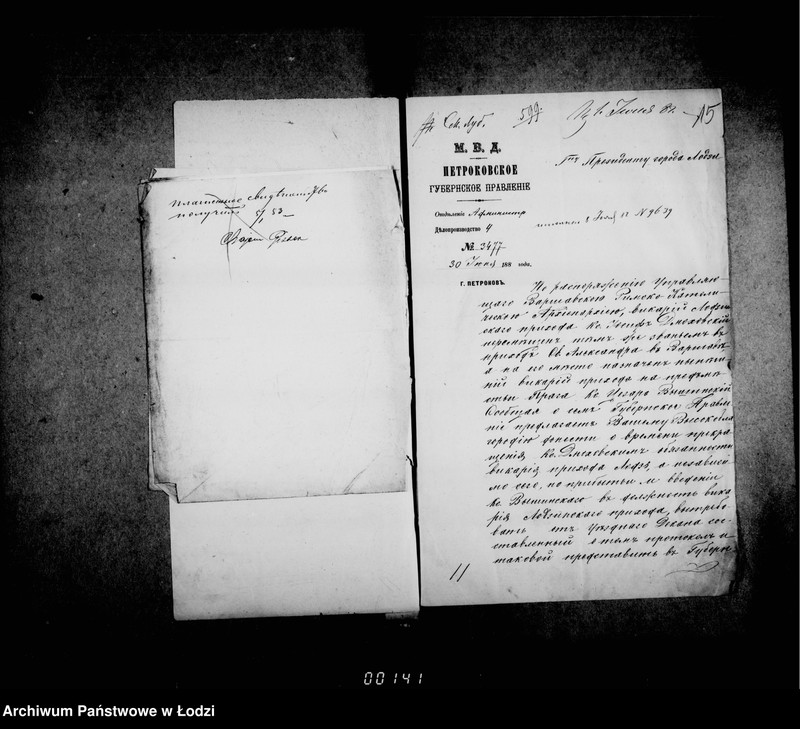 платежное свидѣтельство
получилъ 5/53
Сок. Луб.
599
Іюля 82.
15
М. В. Д.
ПЕТРОКОВСКОЕ
ГУБЕРНСКОЕ ПРАВЛЕНІЕ
Г-ну Президенту города Лодзи
Отдѣленіе Администр
Дѣлопроизводство 4
Іюля 82 N 9639
№ 3477
30 Іюня 188 года.
Г. ПЕТРОКОВЪ.
По распоряженію Управляю-
щаго Варшавскою Римско-Католи-
ческою Архіепархіею, викарій Лодзин-
скаго прихода Кс. Іосифъ
перемѣщенъ тѣмъ же званіемъ въ
приходъ Св. Александра въ Варшавѣ
а на его мѣсто назначенъ нынѣш-
ній викарій прихода на предмѣ-
стьи Прага Кс. Цезарь Вышинскій
Сообщая о семъ Губернское Правле-
ніе предлагаетъ Вашему Высокобла-
городію донести о времени прекра-
щенія Кс. обязанности
викарія прихода Лодзь, а независи-
мо сего, по прибытіи и введеніи
Кс. Вышинскаго въ должность вика-
рія Лодзинскаго прихода, вытребо-
вать отъ Уѣзднаго Декана сос-
тавленный о томъ протоколъ и
таковой представить въ Губерн-
11
00141
Archiwum Państwowe w Łodzi